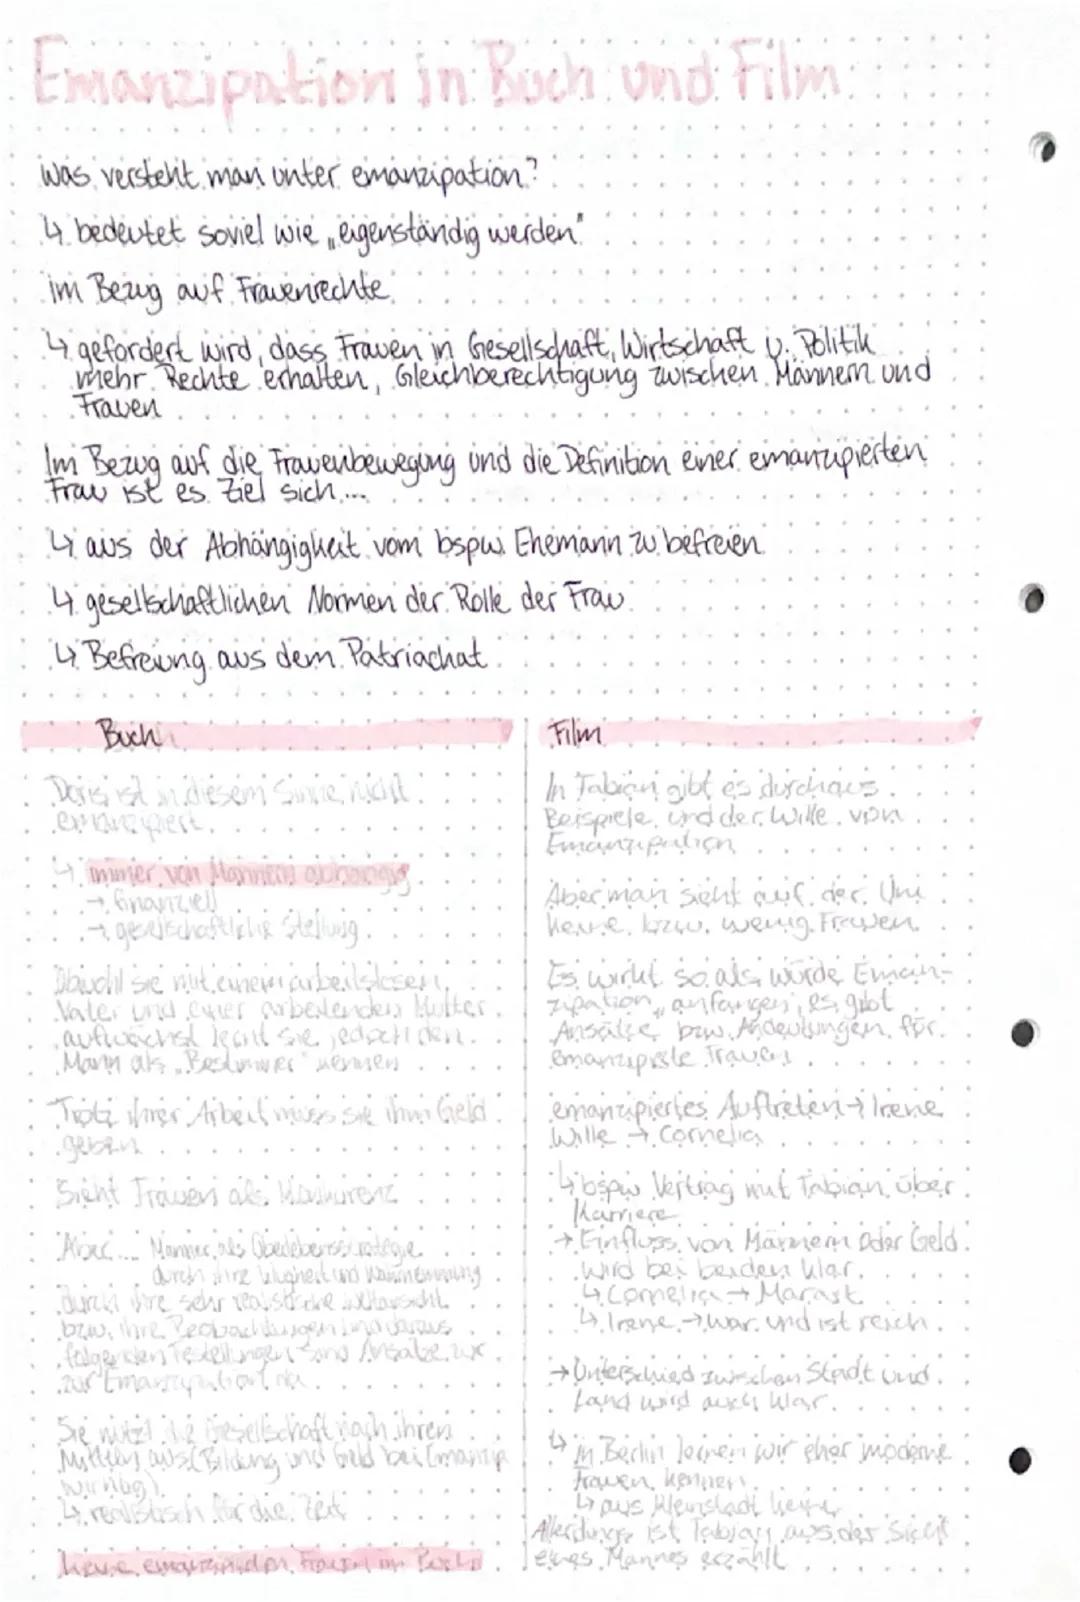 Emanzipation in Buch und Film
Was versteht man unter emanzipation?
↳ bedeutet soviel wie „eigenständig werden"
im Bezug auf Frauenrechte
↳ gefordert wird, dass Frauen in Gesellschaft, Wirtschaft u. Politik
mehr Rechte erhalten, Gleichberechtigung zwischen Männern und
Frauen
Im Bezug auf die Frauenbewegung und die Definition einer emanzipierten
Frau ist es Ziel sich...
↳ aus der Abhängigkeit vom bspw. Ehemann zu befreien
↳ gesellschaftlichen Normen der Rolle der Frau
↳ Befreiung aus dem Patriachat
Buch
Doris ist in diesem Sinne nicht
emanzipiert.
↳ immer von Männern abhängig
→ finanziell
→ gesellschaftliche Stellung
Obwohl sie mit einem arbeitslosen
Vater und einer arbeitenden Mutter
aufwächst lernt sie jedoch den
Mann als „Bestimmer" kennen
Trotz ihrer Arbeit muss sie ihm Geld
geben
Sieht Frauen als Konkurenz
Aber... Männer als Überlebensstrategie
durch ihre Klugheit und
durch ihre sehr realistische Weltansicht
bzw. ihre Beobachtungen und daraus
folgenden sind Ansätze zur
zur Emanzipation da
Sie nützt die Gesellschaft nach ihren
Mitteln aus (Bildung und Geld bei Emanzip
↳ realistisch für die Zeit
keine Frauen im Buch
Film
In Fabian gibt es durchaus
Beispiele und der Wille von
Emanzipation
Aber man sieht auf der Uni
keine bzw. wenig Frauen
Es wirkt so als würde Eman-
zipation „anfangen", es gibt
Ansätze bzw. Andeutungen für
emanzipiste Frauen
emanzipiertes Auftreten → Irene
Wille → Cornelia
↳ bspw Vertrag mit Fabian über
Karriere
→ Einfluss von Männern oder Geld
wird bei beiden klar
↳ Cornelia → Marast
↳ Irene → war und ist reich
→ Unterschied zwischen Stadt und
Land wird auch klar
↳ in Berlin lernen wir eher moderne
Frauen kennen
↳ aus Kleinstadt keine
Allerdings ist Fabian aus der Sicht
eines Mannes erzählt